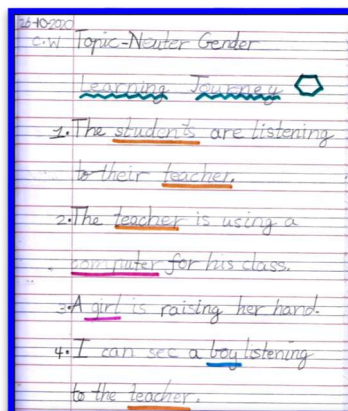 26-10-2020
C.W Topic-Neuter Gender
Learning Journey
1. The students are listening
to their teacher.
2. The teacher is using a
computer for his class.
3. A girl is raising her hand.
4. I can see a boy listening
to the teacher.